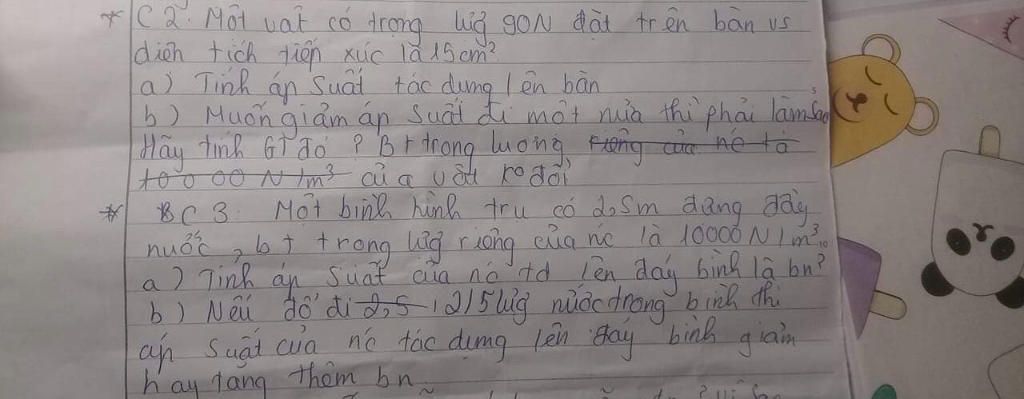 * C2. Một vật có trọng lượg 90N đặt trên bàn vs
diện tích tiếp xúc là 15cm².
a) Tính áp suất tác dụng lên bàn
b) Muốn giảm áp suất đi một nửa thì phải làm sao
Hãy tính GT đó? Bt trọng lượng riêng của nc là
10000 N/m³ của vật ko đổi
* BC3. Một bình hình trụ có 2,5m đựng đầy
nước, bt trọng lượg riêng của nc là 10000N/m³.
a) Tính áp suất của nc td lên đáy bình là bn?
b) Nếu đổ đi 2,5 2/5 lượg nước trong bình thì
áp suất của nc tác dụng lên đáy bình giảm
hay tăng thêm bn